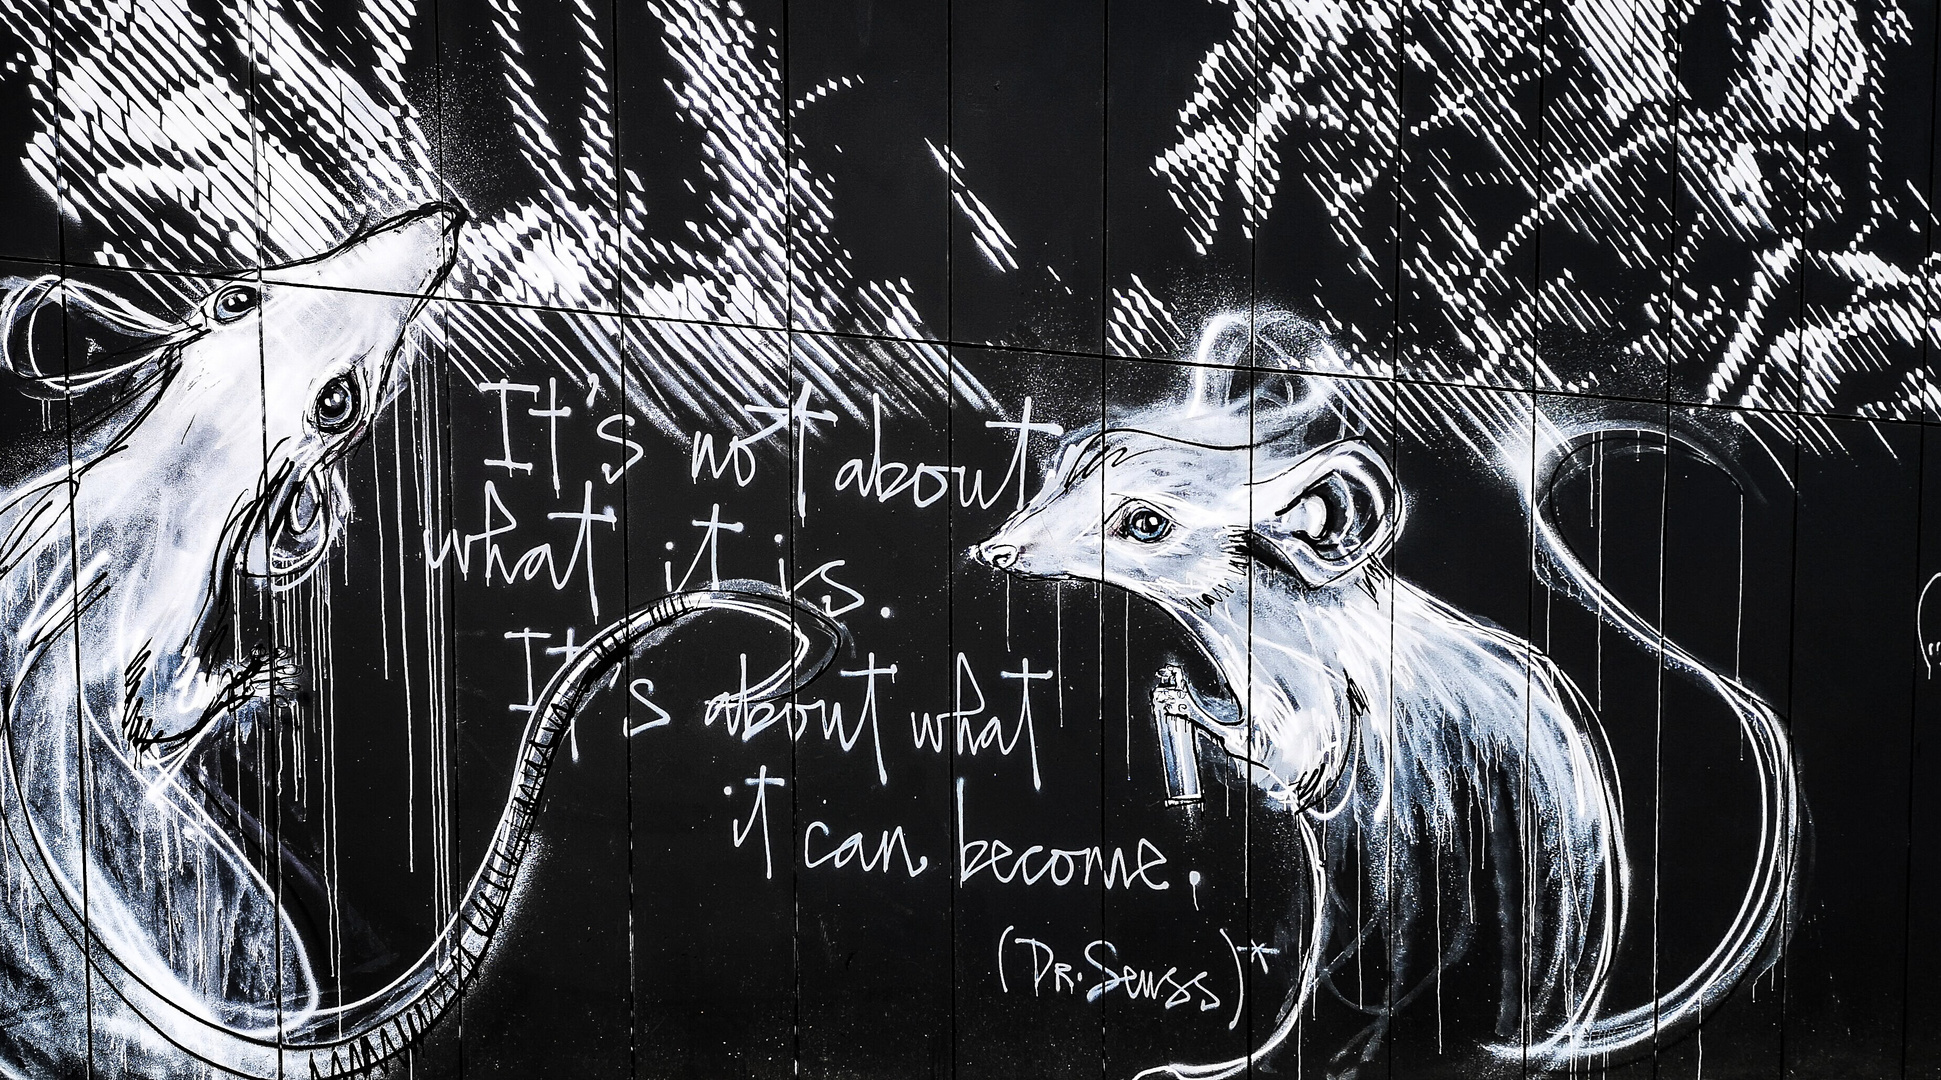 It's not about
what it is.
It's about what
it can become.
(DR. Seuss)*